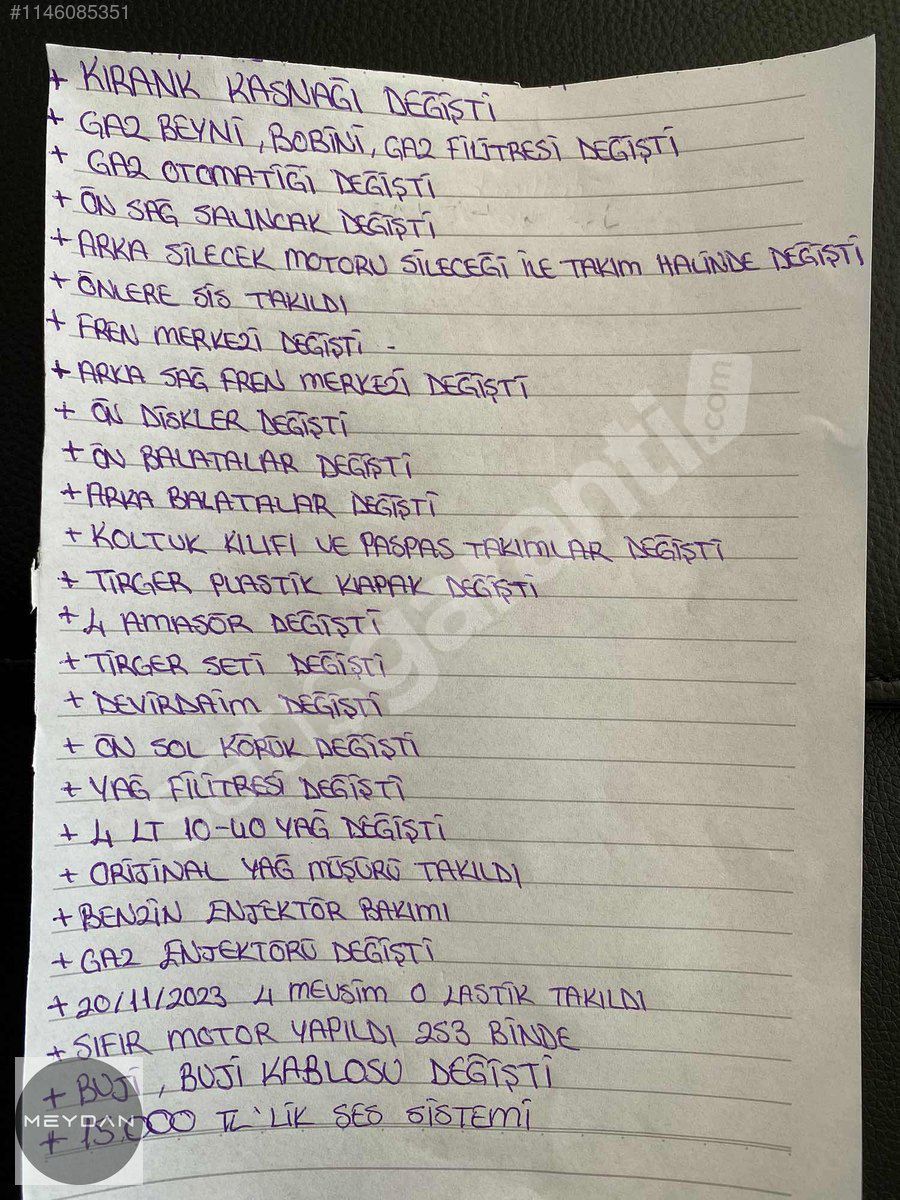 #1146085351
+ KIRANK KASNAĞI DEĞİŞTİ
+ GAZ BEYNİ, BOBİNİ, GAZ FİLİTRESİ DEĞİŞTİ
+ GAZ OTOMATİĞİ DEĞİŞTİ
+ ÖN SAĞ SALINCAK DEĞİŞTİ
+ ARKA SİLECEK MOTORU SİLECEĞİ İLE TAKIM HALİNDE DEĞİŞTİ
+ ÖNLERE SİS TAKILDI
+ FREN MERKEZİ DEĞİŞTİ -
+ ARKA SAĞ FREN MERKEZİ DEĞİŞTİ
+ ÖN DİSKLER DEĞİŞTİ
+ ÖN BALATALAR DEĞİŞTİ
+ ARKA BALATALAR DEĞİŞTİ
+ KOLTUK KILIFI VE PASPAS TAKIMLAR DEĞİŞTİ
+ TİRGER PLASTİK KAPAK DEĞİŞTİ
+ 4 AMASÖR DEĞİŞTİ
+ TİRGER SETİ DEĞİŞTİ
+ DEVİRDAİM DEĞİŞTİ
+ ÖN SOL KÖRÜK DEĞİŞTİ
+ YAĞ FİLİTRESİ DEĞİŞTİ
+ 4 LT 10-40 YAĞ DEĞİŞTİ
+ ORİJİNAL YAĞ MÜŞÜRÜ TAKILDI
+ BENZİN ENJEKTÖR BAKIMI
+ GAZ ENJEKTÖRÜ DEĞİŞTİ
+ 20/11/2023 4 MEVSİM 0 LASTİK TAKILDI
+ SIFIR MOTOR YAPILDI 253 BİNDE
+ BUJİ, BUJİ KABLOSU DEĞİŞTİ
+ 15.000 TL'LİK SES SİSTEMİ
MEYDAN
sahibinden.com